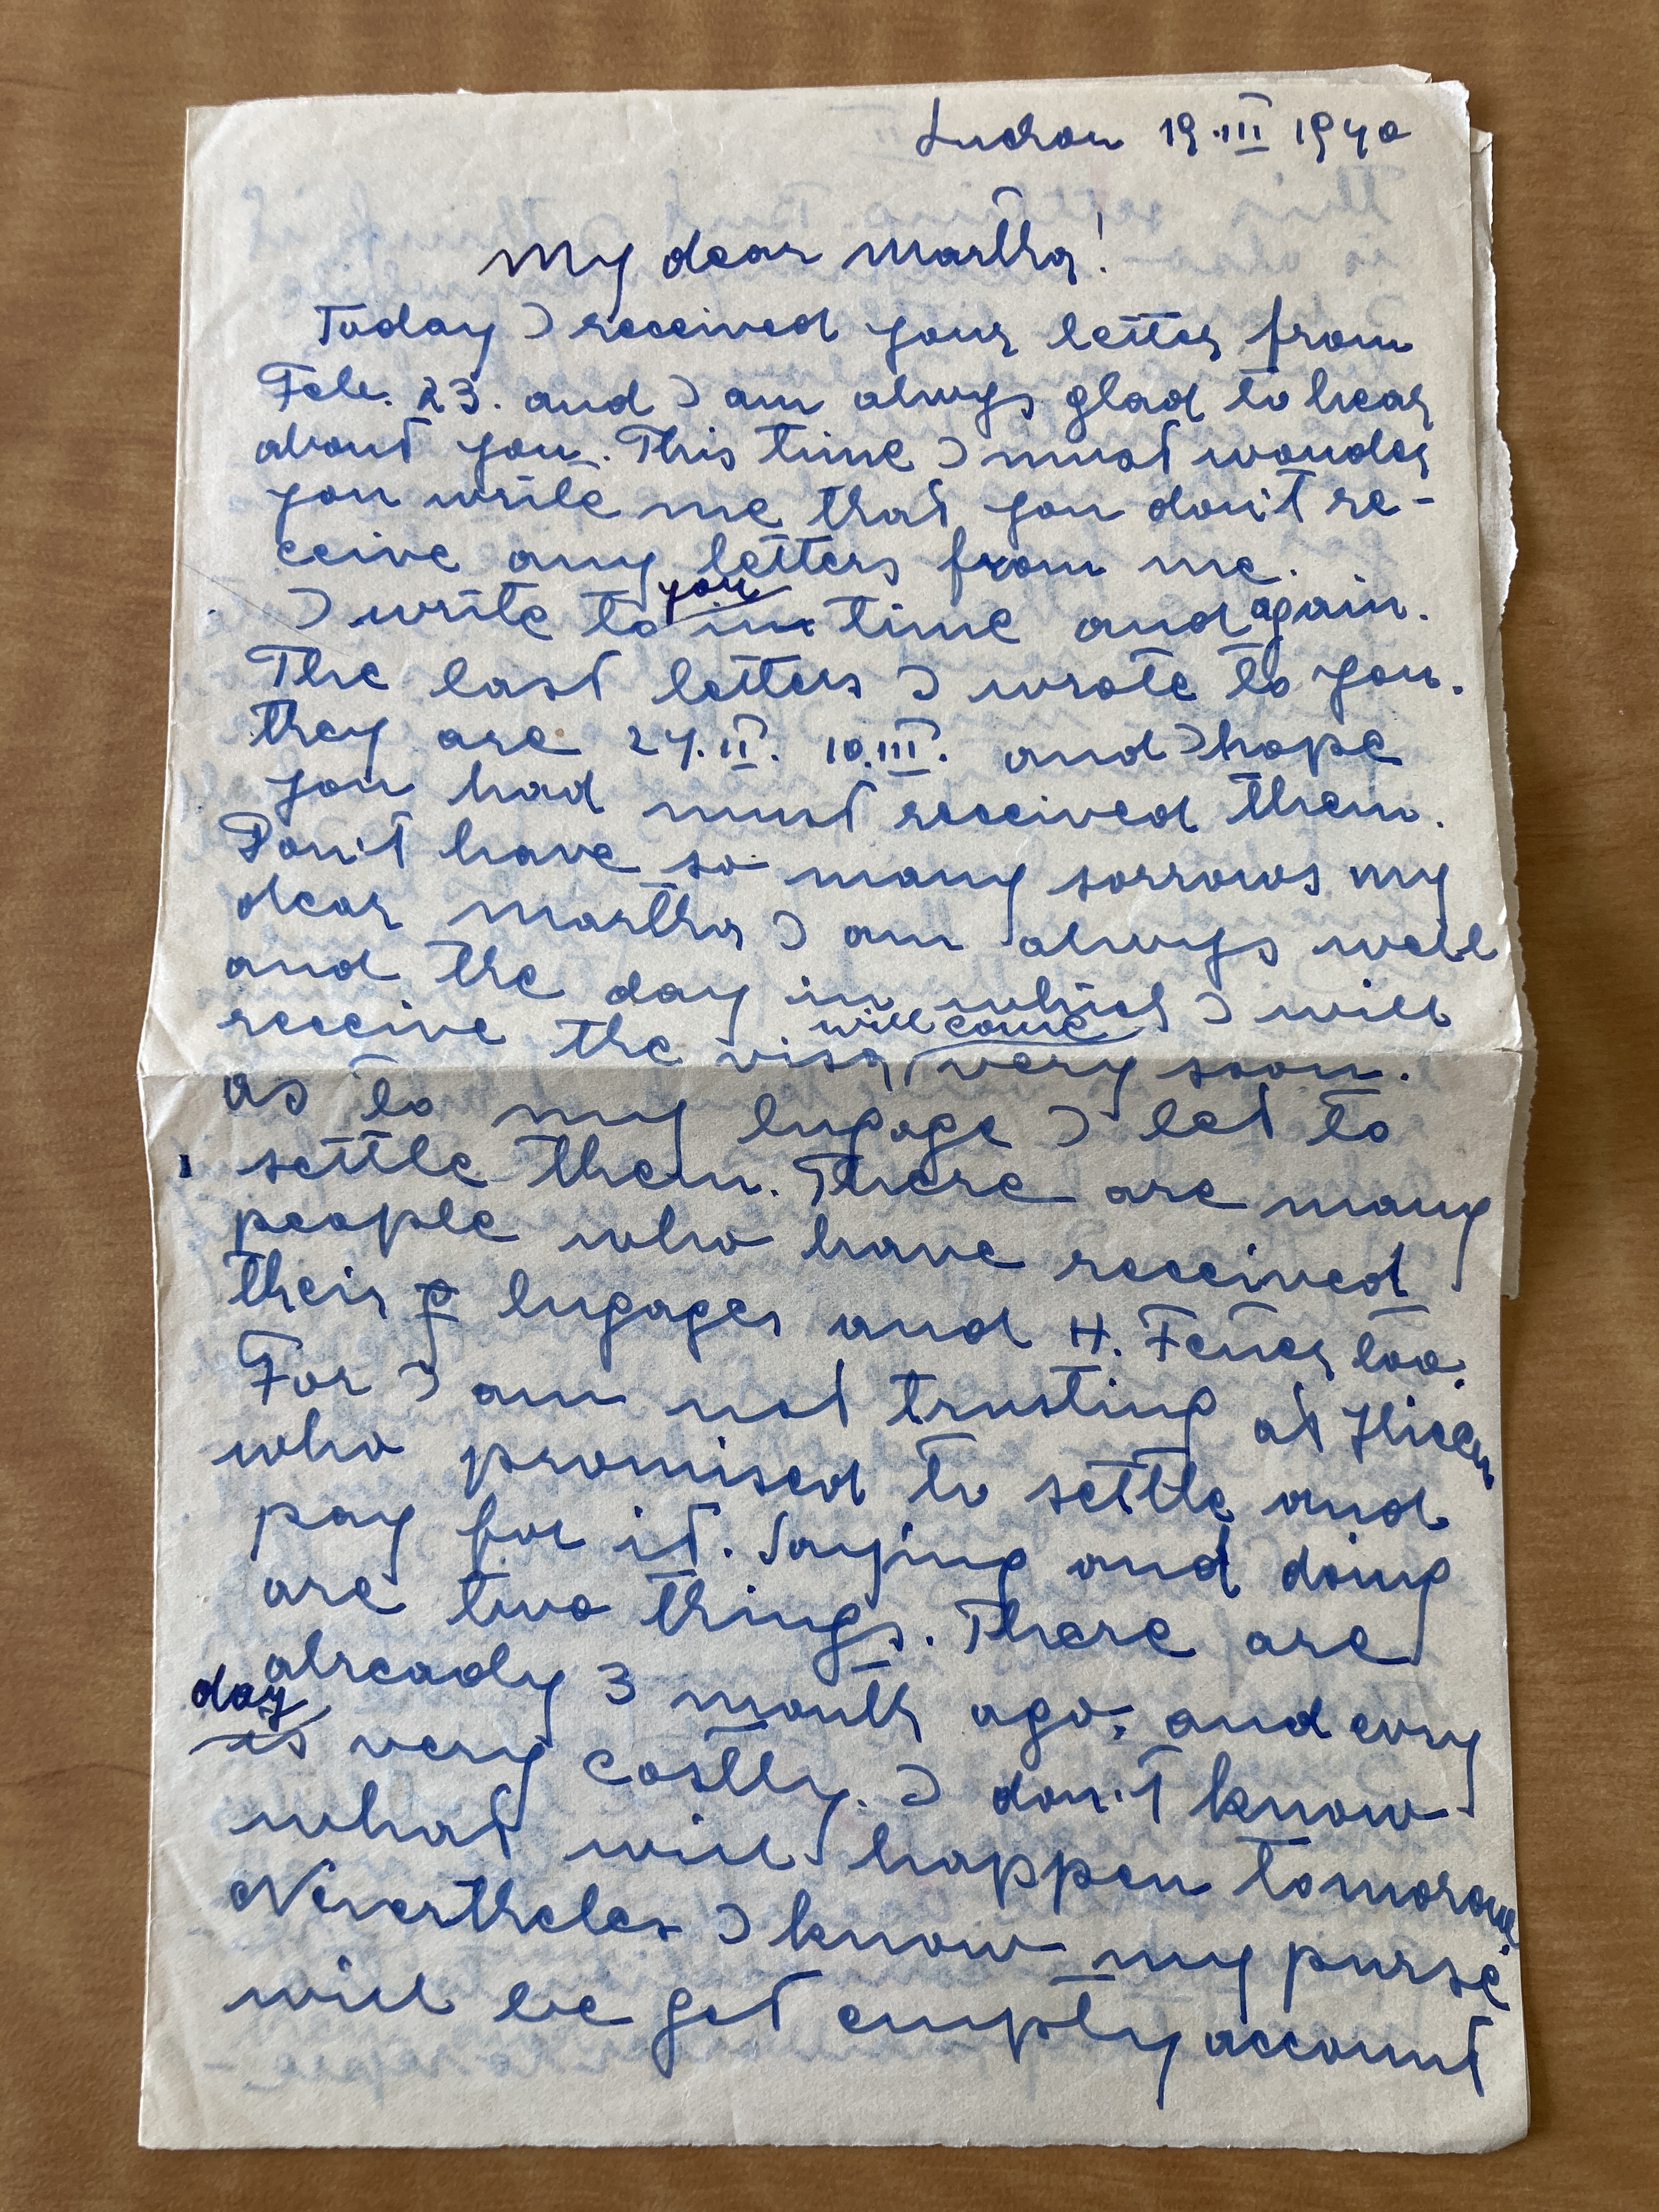 London 19.III 1940
My dear Martha!
Today I received your letter from
Feb. 23. and I am alwys glad to hear
about you. This time I must wonder
you write me that you don't re-
ceive any letters from me.
you
I write to time and again.
The last letters I wrote to you.
they are 27.II. 10.III. and I hope
you had must received them.
Don't have so many sorrows my
dear Martha I am alwys well
and the day in which I will
will come
receive the visa very soon.
as to my lugage I let to
settle them. There are many
people who have received
their lugages and H. too.
For I am not trusting at
who promised to settle and
pay for it. Saying and doing
are two things. There are
already 3 month ago, and evry
day
is very costly. I don't know
what will happen tomorow.
Nevertheles I know my purse
will be get empty account